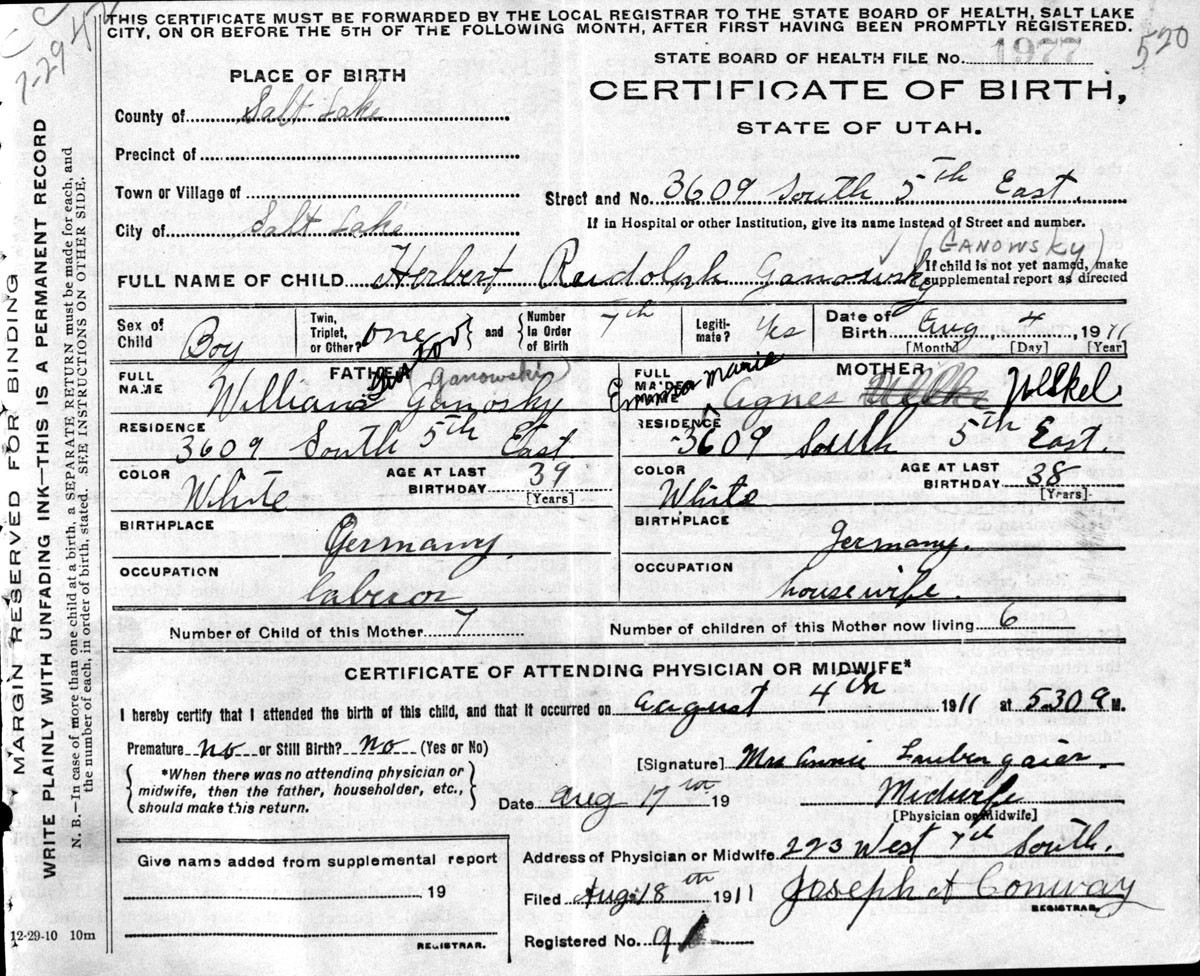 THIS CERTIFICATE MUST BE FORWARDED BY THE LOCAL REGISTRAR TO THE STATE BOARD OF HEALTH, SALT LAKE
CITY, ON OR BEFORE THE 5TH OF THE FOLLOWING MONTH, AFTER FIRST HAVING BEEN PROMPTLY REGISTERED.
520
7-29
STATE BOARD OF HEALTH FILE No. 1977
PLACE OF BIRTH
CERTIFICATE OF BIRTH,
STATE OF UTAH.
County of Salt Lake
Precinct of
Town or Village of
Street and No. 3609 South 5th East
If in Hospital or other Institution, give its name instead of Street and number.
City of Salt Lake
(GANOWSKY)
FULL NAME OF CHILD Herbert Rudolph Ganowsky
If child is not yet named, make
supplemental report as directed
Sex of Child Boy
Twin, Triplet, or Other? one
and
Number in Order of Birth 7th
Legiti-mate? Yes
Date of Birth Aug 4 1911
[Month] [Day] [Year]
FATHER
(Ganowski)
FULL NAME William Ganosky
MOTHER
FULL MAIDEN NAME Emma Marie Agnes Welkel
RESIDENCE 3609 South 5th East
RESIDENCE 3609 South 5th East.
COLOR White
AGE AT LAST BIRTHDAY 39 [Years]
COLOR White
AGE AT LAST BIRTHDAY 38 [Years]
BIRTHPLACE Germany.
BIRTHPLACE Germany.
OCCUPATION laberor
OCCUPATION housewife.
Number of Child of this Mother 7
Number of children of this Mother now living 6
CERTIFICATE OF ATTENDING PHYSICIAN OR MIDWIFE*
I hereby certify that I attended the birth of this child, and that it occurred on August 4th 1911 at 530 a M.
Premature no or Still Birth? no (Yes or No)
*When there was no attending physician or
midwife, then the father, householder, etc.,
should make this return.
[Signature] Mrs Annie
Date Aug 17th 19
Midwife
[Physician or Midwife]
Give name added from supplemental report
19
REGISTRAR.
Address of Physician or Midwife 223 West 7th South.
Filed Aug 18th 1911 Joseph A Conway
REGISTRAR.
Registered No. 9
12-29-10 10m
MARGIN RESERVED FOR BINDING
WRITE PLAINLY WITH UNFADING INK—THIS IS A PERMANENT RECORD
N. B.—In case of more than one child at a birth, a SEPARATE RETURN must be made for each, and
the number of each, in order of birth, stated. SEE INSTRUCTIONS ON OTHER SIDE.